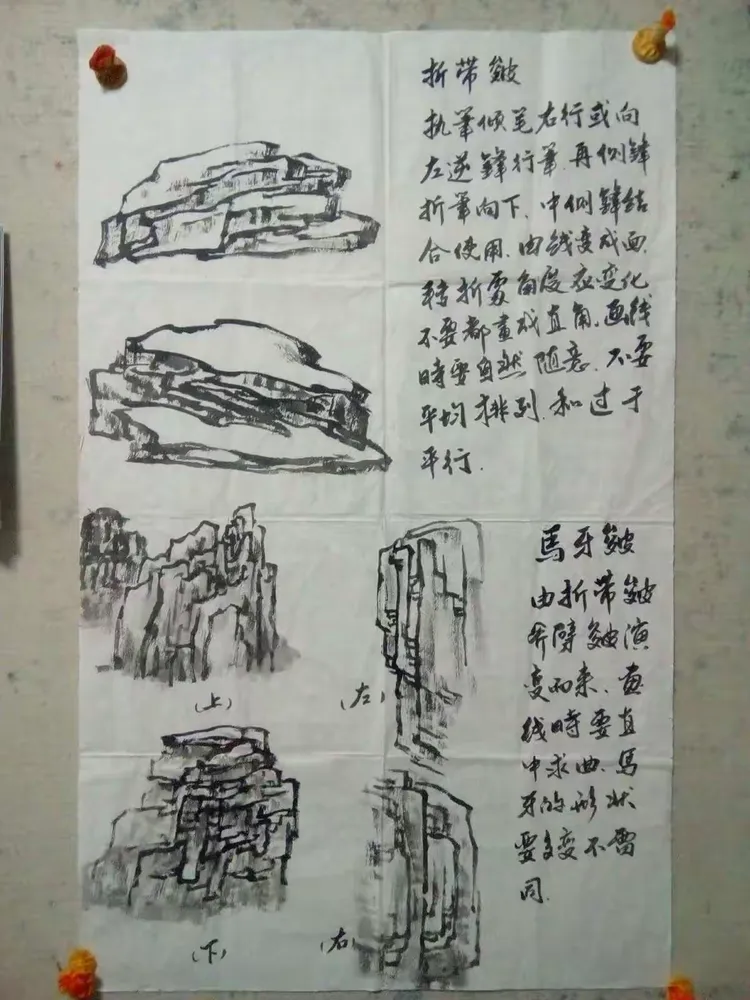 折带皴
执筆倾笔右行或向
左逆鋒行筆.再侧鋒
折筆向下.中侧鋒结
合使用.由线变成面.
转折處角度应变化
不要都畫成直角.画线
時要自然随意.不要
平均排列.和过于
平行.
馬牙皴
由折带皴
斧劈皴演
变而来.畫
线時要直
中求曲.馬
牙的形状
要多变不雷
同.
(上)
(左)
(下)
(右)